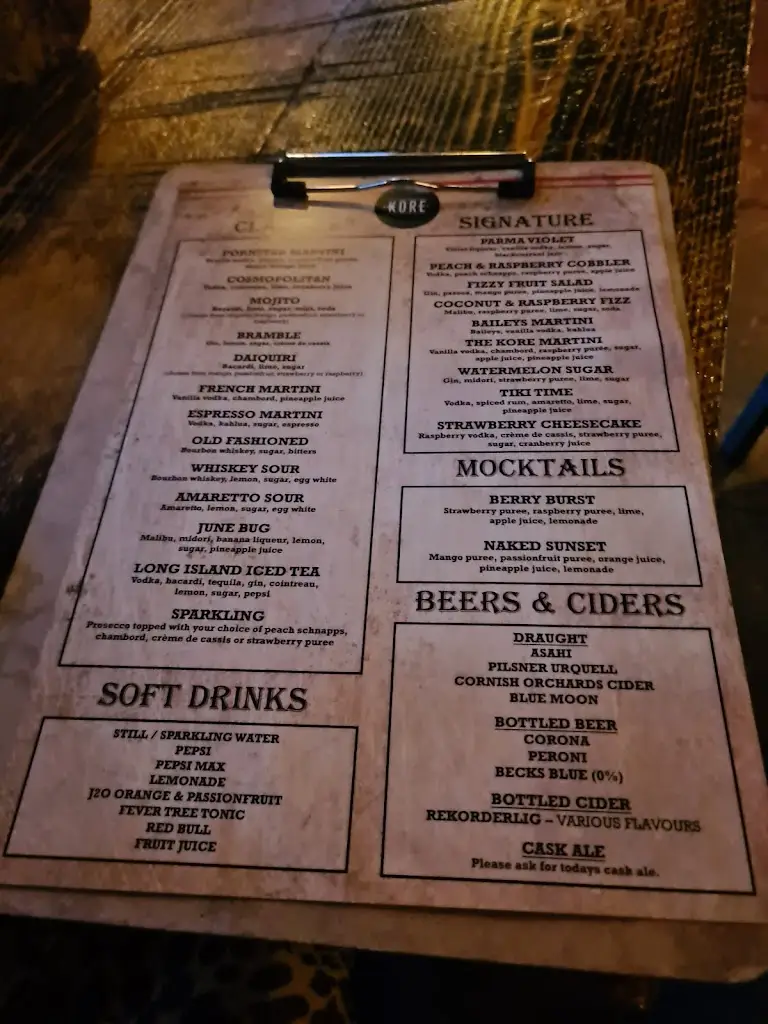 KORE
PORNSTAR MARTINI
COSMOPOLITAN
Vodka, cointreau, lime, cranberry juice
MOJITO
Bacardi, lime, sugar, mint, soda
BRAMBLE
Gin, lemon, sugar, crème de cassis
DAIQUIRI
Bacardi, lime, sugar
FRENCH MARTINI
Vanilla vodka, chambord, pineapple juice
ESPRESSO MARTINI
Vodka, kahlua, sugar, espresso
OLD FASHIONED
Bourbon whiskey, sugar, bitters
WHISKEY SOUR
Bourbon whiskey, lemon, sugar, egg white
AMARETTO SOUR
Amaretto, lemon, sugar, egg white
JUNE BUG
Malibu, midori, banana liqueur, lemon,
sugar, pineapple juice
LONG ISLAND ICED TEA
Vodka, bacardi, tequila, gin, cointreau,
lemon, sugar, pepsi
SPARKLING
Prosecco topped with your choice of peach schnapps,
chambord, crème de cassis or strawberry puree
SOFT DRINKS
STILL / SPARKLING WATER
PEPSI
PEPSI MAX
LEMONADE
J2O ORANGE & PASSIONFRUIT
FEVER TREE TONIC
RED BULL
FRUIT JUICE
SIGNATURE
PARMA VIOLET
PEACH & RASPBERRY COBBLER
Vodka, peach schnapps, raspberry puree, apple juice
FIZZY FRUIT SALAD
Gin, passoa, mango puree, pineapple juice, lemonade
COCONUT & RASPBERRY FIZZ
Malibu, raspberry puree, lime, sugar, soda
BAILEYS MARTINI
Baileys, vanilla vodka, kahlua
THE KORE MARTINI
Vanilla vodka, chambord, raspberry puree, sugar,
apple juice, pineapple juice
WATERMELON SUGAR
Gin, midori, strawberry puree, lime, sugar
TIKI TIME
Vodka, spiced rum, amaretto, lime, sugar,
pineapple juice
STRAWBERRY CHEESECAKE
Raspberry vodka, crème de cassis, strawberry puree,
sugar, cranberry juice
MOCKTAILS
BERRY BURST
Strawberry puree, raspberry puree, lime,
apple juice, lemonade
NAKED SUNSET
Mango puree, passionfruit puree, orange juice,
pineapple juice, lemonade
BEERS & CIDERS
DRAUGHT
ASAHI
PILSNER URQUELL
CORNISH ORCHARDS CIDER
BLUE MOON
BOTTLED BEER
CORONA
PERONI
BECKS BLUE (0%)
BOTTLED CIDER
REKORDERLIG – VARIOUS FLAVOURS
CASK ALE
Please ask for todays cask ale.